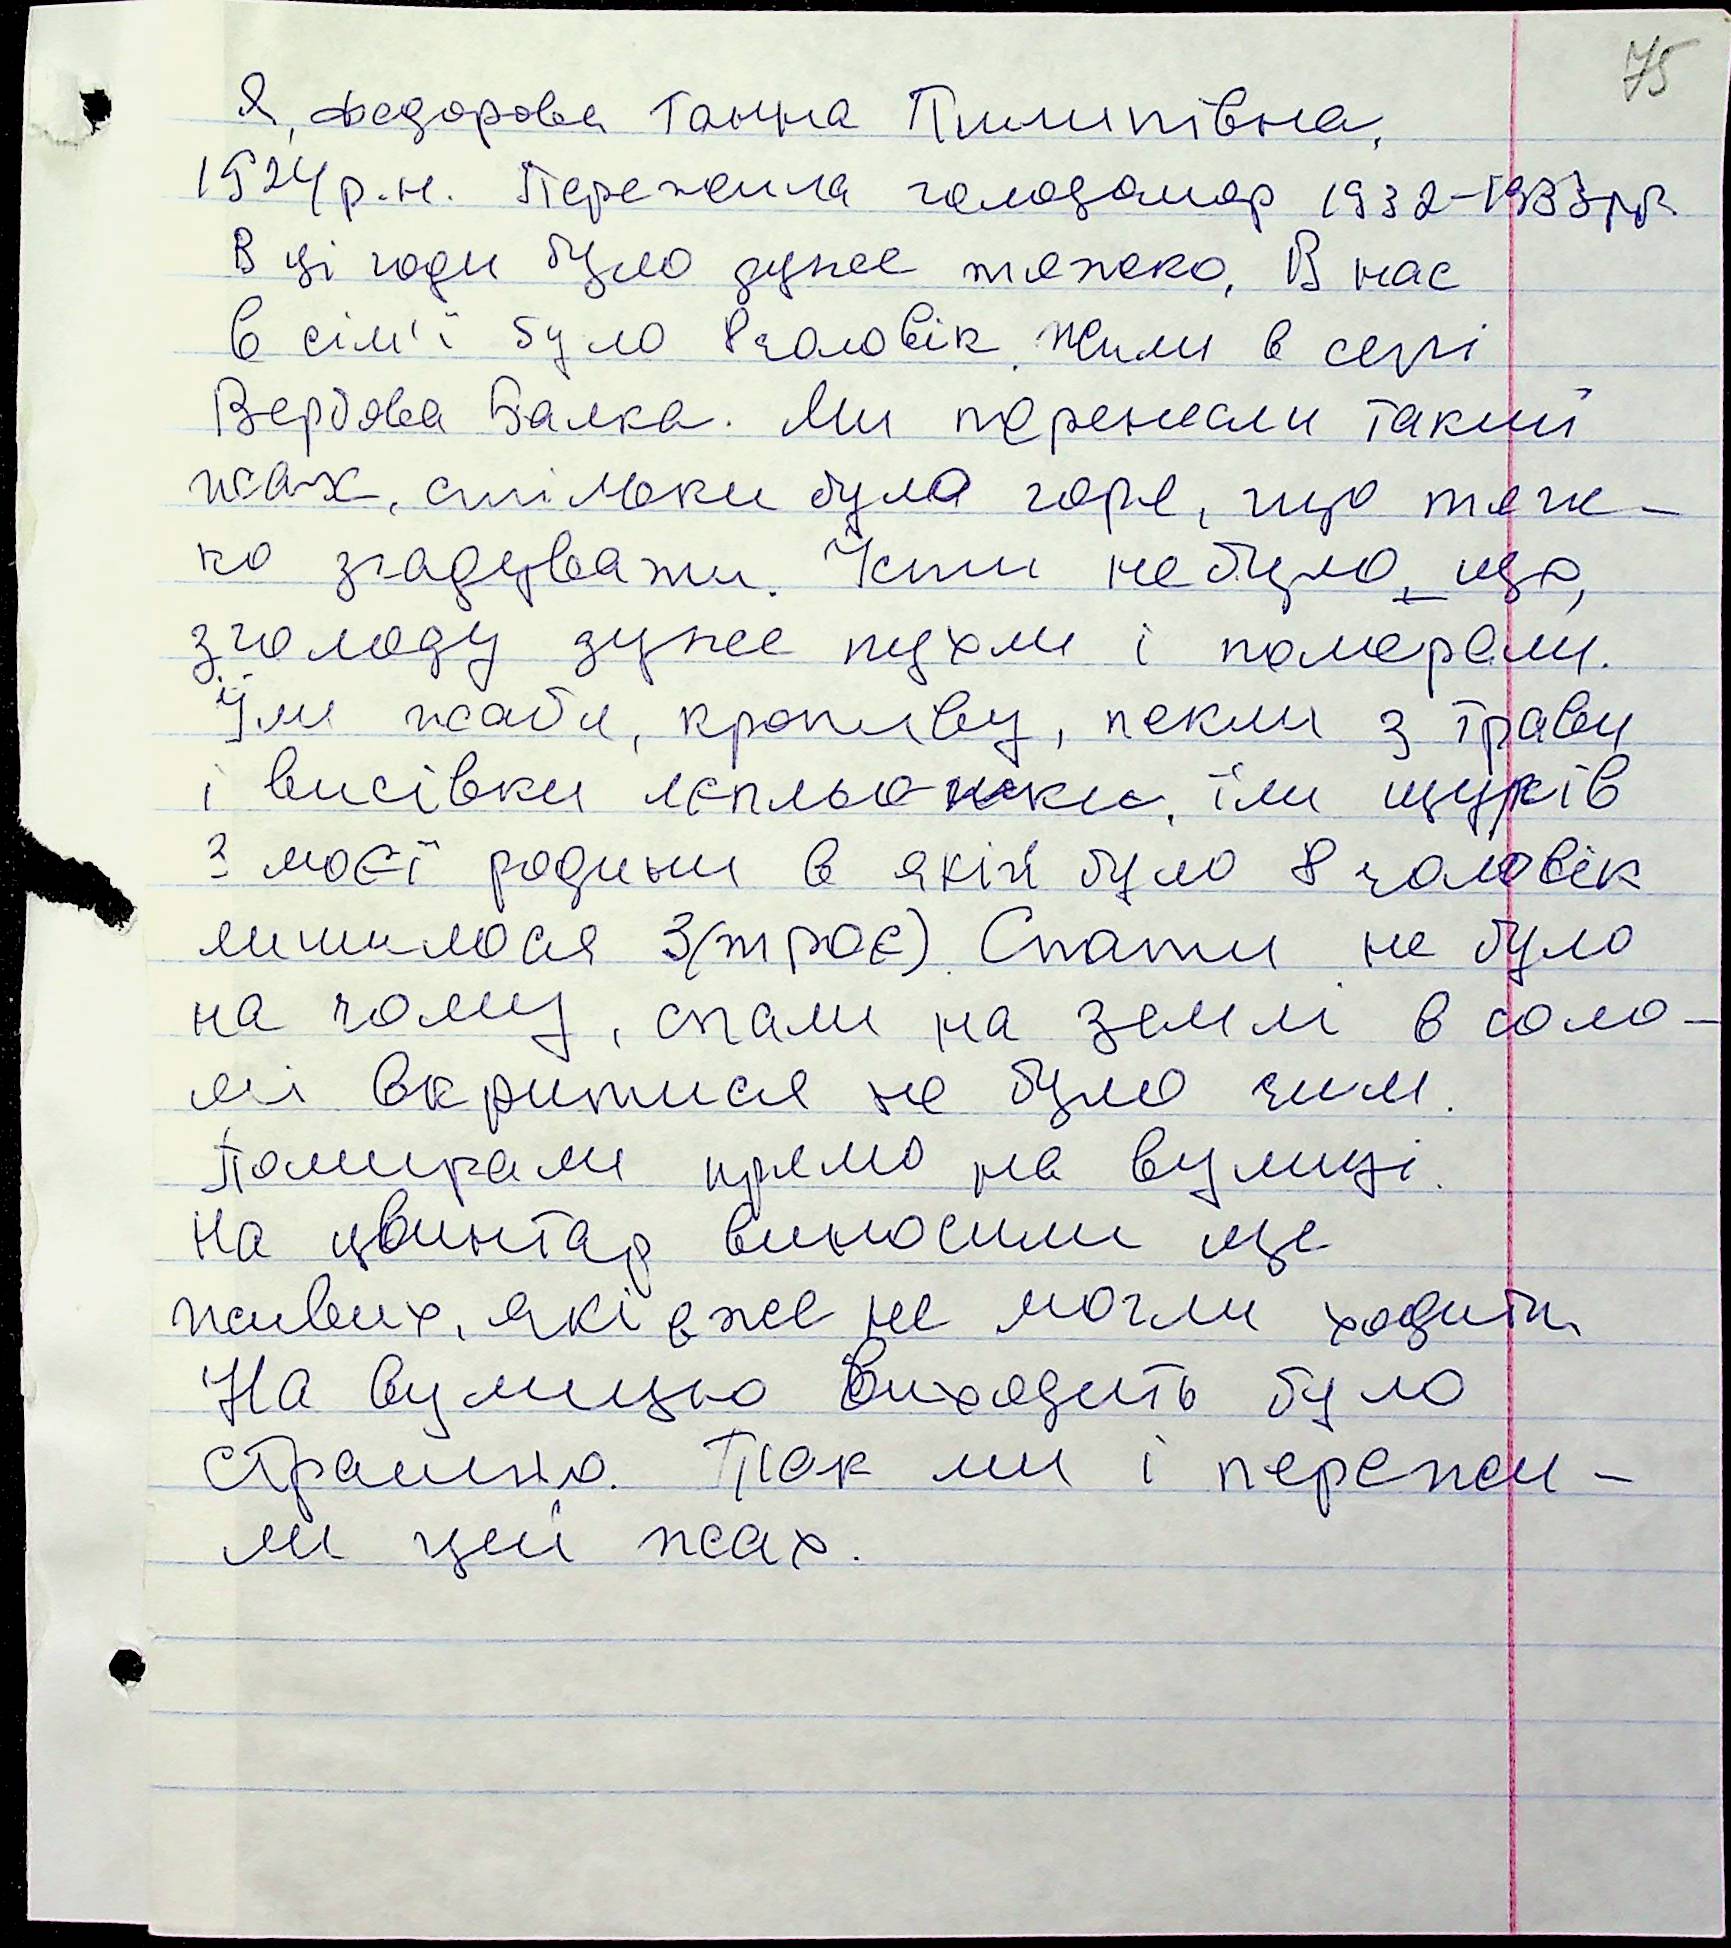 75
Я, Федорова Ганна Пилипівна,
1924 р.н. Пережила голодомор 1932-1933 рр
В ці годи було дуже тяжко, В нас
в сім'ї було 8 чоловік. Жили в селі
Вербова Балка. Ми перенесли такий
жах, стільки була горе, що тяж-
ко згадувати. Їсти не було, що,
з голоду дуже пухли і померали.
Їли жаби, кропиву, пекли з трави
і висівки лєпльонки, їли щурів
З моєї родини в якій було 8 чоловік
лишилося 3 (троє). Спати не було
на чому, спали на землі в соло-
мі вкритися не було чим.
Помирали прямо на вулиці.
На цвинтар виносили ще
живих, які вже не могли ходити.
На вулицю виходить було
страшно. Так ми і пережи-
ли цей жах.